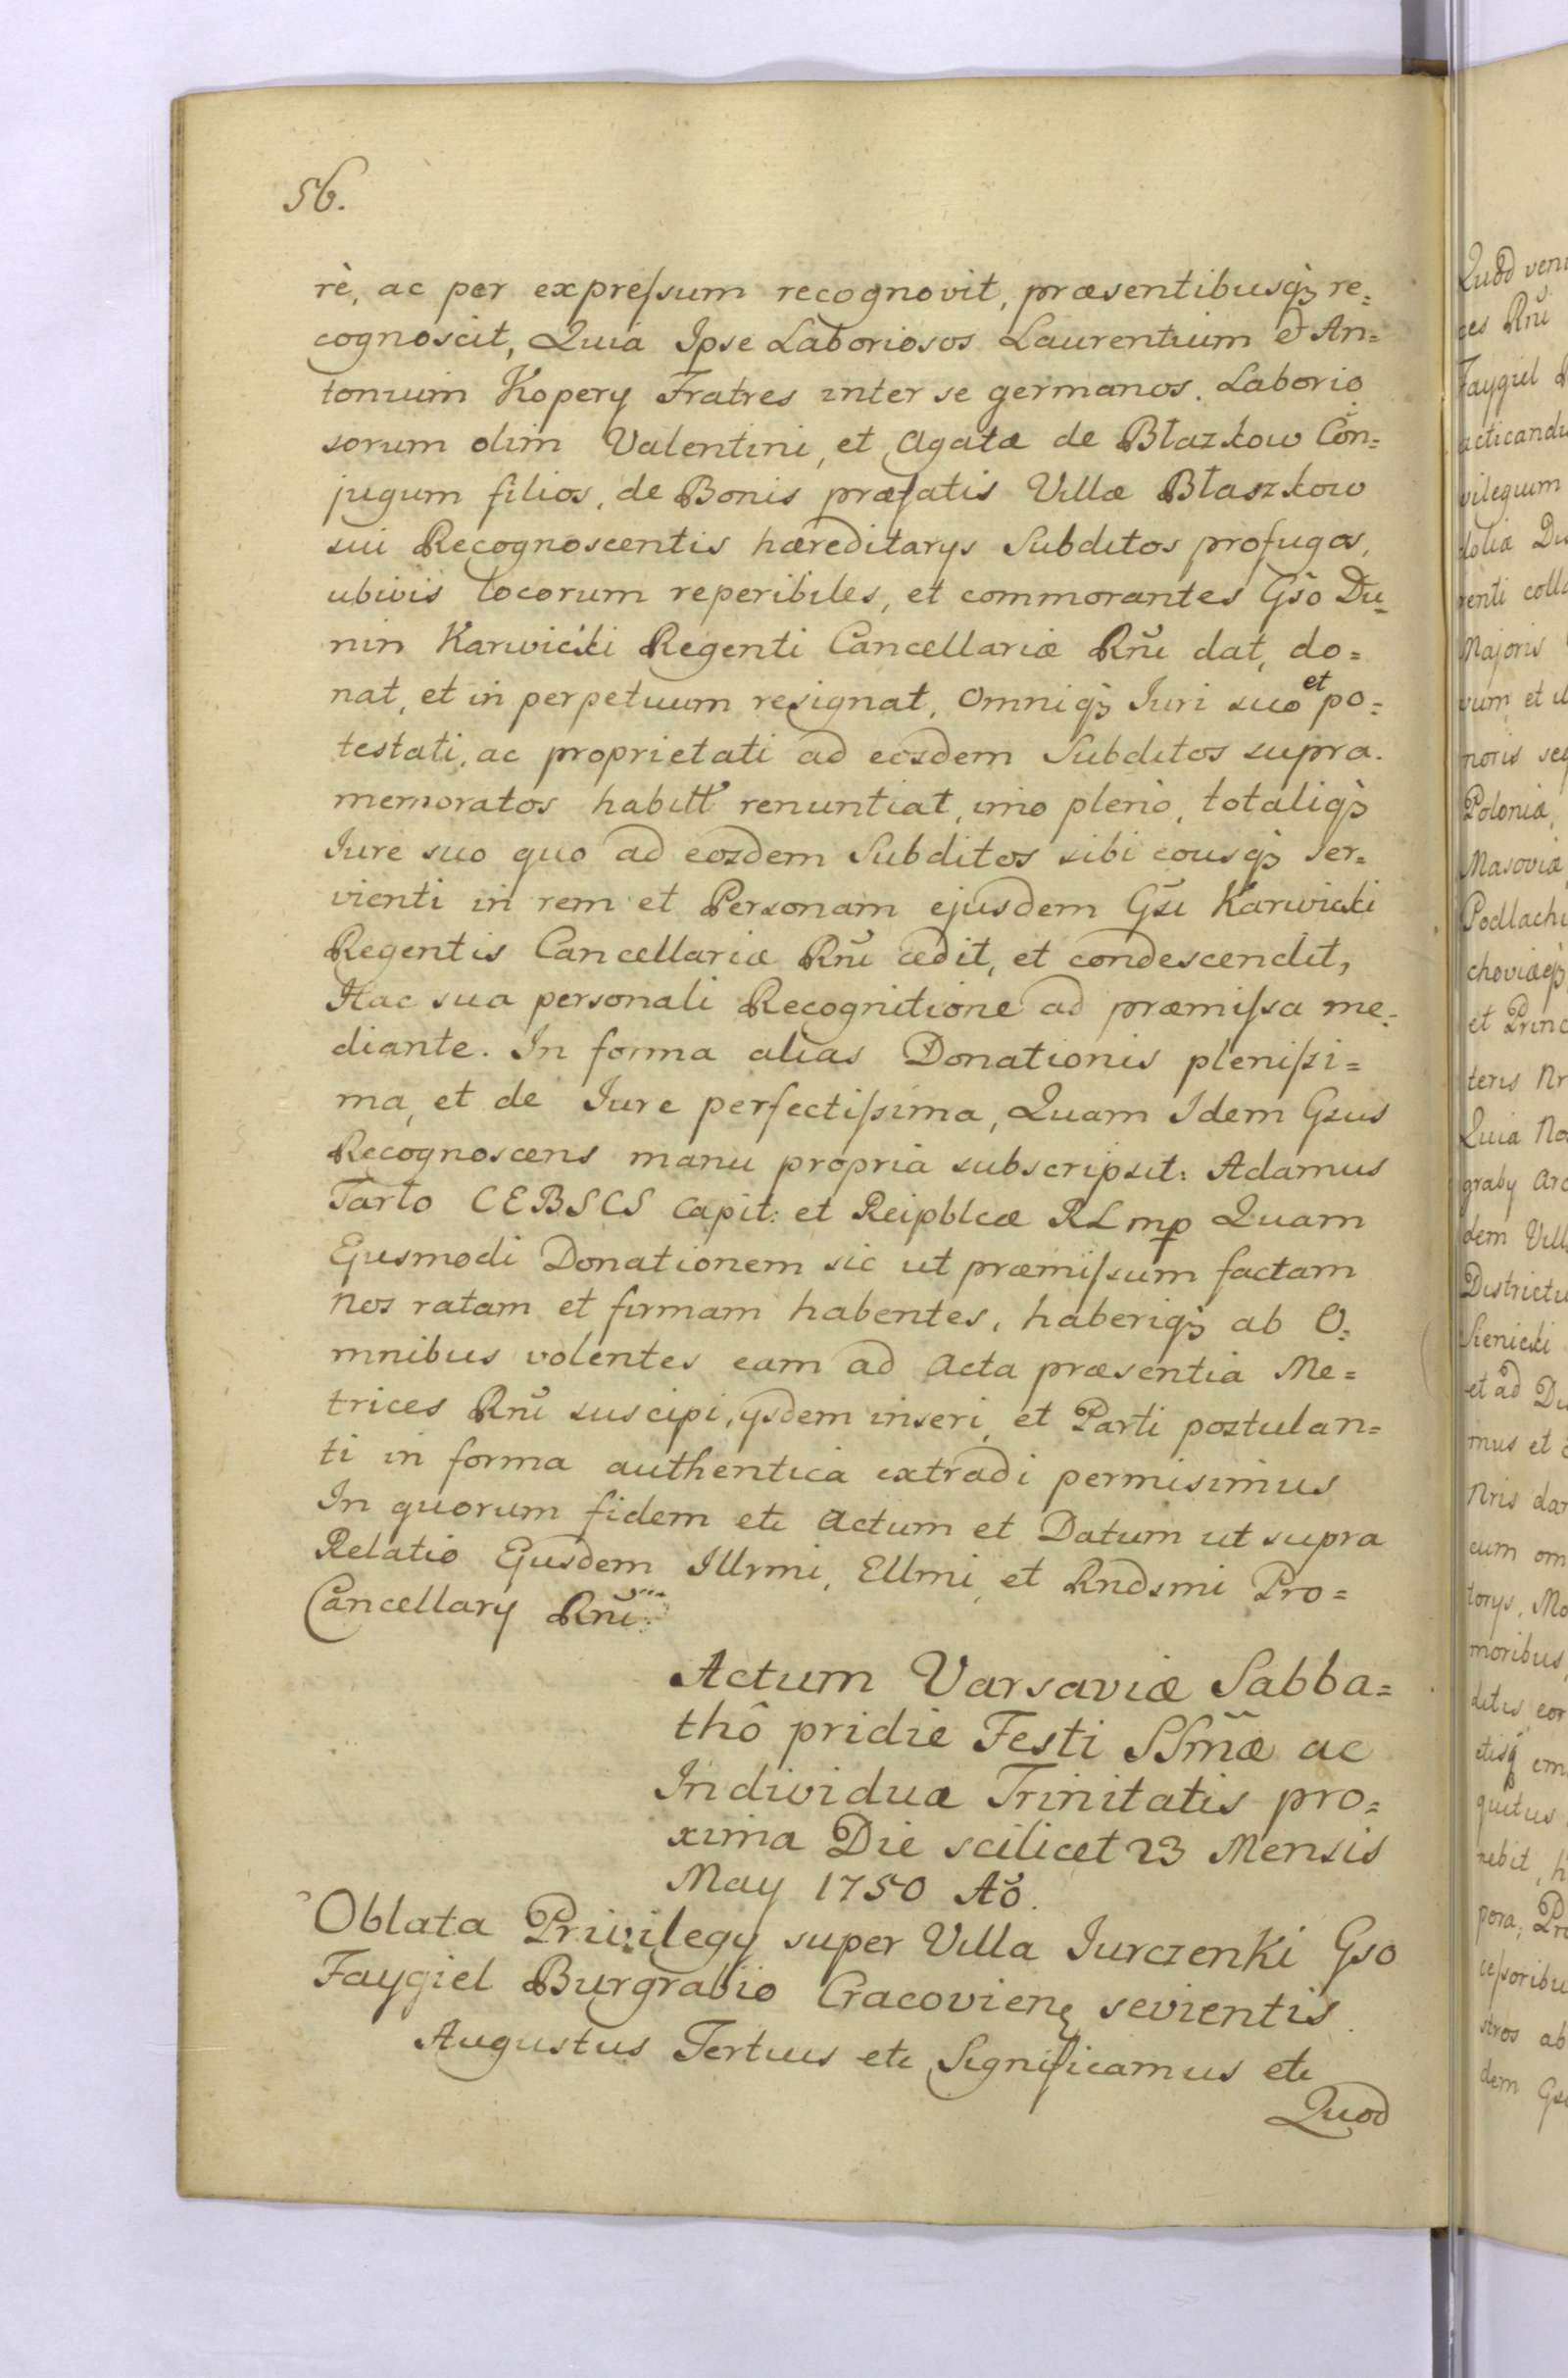 56.
rè, ac per expreſsum recognovit, præsentibusq̀ꝫ re=
cognoscit, Quia Ipse Laboriosos Laurentium et An=
tonium Kopery Fratres inter se germanos. Laborio
sorum olim Valentini, et Agatæ de Błazkow Con=
jugum filios, de Bonis præfatis Villæ Błaszkow
sui Recognoscentis hæreditarys Subditos profugos,
ubivis locorum reperibiles, et commorantes Gso Du=
nin Karwicki Regenti Cancellariæ Rñi dat, do=
nat, et in perpetuum resignat, Omniq̀ꝫ Iuri suo et po=
testati, ac proprietati ad eosdem Subditos supra.
memoratos habitt renuntiat, imo pleno, totaliq̀ꝫ
Iure suo quo ad eosdem Subditos sibi eousq̀ꝫ ser=
vienti in rem et Personam ejusdem Gsi Karwicki
Regentis Cancellariæ Rñi cedit, et condescendit,
Hac sua personali Recognitione ad præmiſsa me=
diante. In forma alias Donationis pleniſsi=
ma, et de Iure perfectiſsima, Quam Idem Gsus
Recognoscens manu propria subscripsit: Adamus
Tarło CEBSCS Capit: et Reipblcæ RLmp Quam
Ejusmodi Donationem sic ut præmiſsum factam
nos ratam et firmam habentes, haberiq̀ꝫ ab O=
mnibus volentes eam ad Acta præsentia Me=
trices Rñi suscipi, ysdem inseri, et Parti postulan=
ti in forma authentica extradi permisimus
In quorum fidem etc Actum et Datum ut supra
Relatio Ejusdem Illrmi, Ellmi, et Rndsmi Pro=
Cancellary Rñi
Actum Varsaviæ Sabba=
thô pridie Festi SSm̃æ ac
Individuæ Trinitatis pro=
xima Die scilicet 23 Mensis
May 1750 Aõ.
Oblata Privilegy super Villa Iurczenki Gso
Faygiel Burgrabio Cracovien̨ sevientis
Augustus Tertius etc Significamus etc
Quod